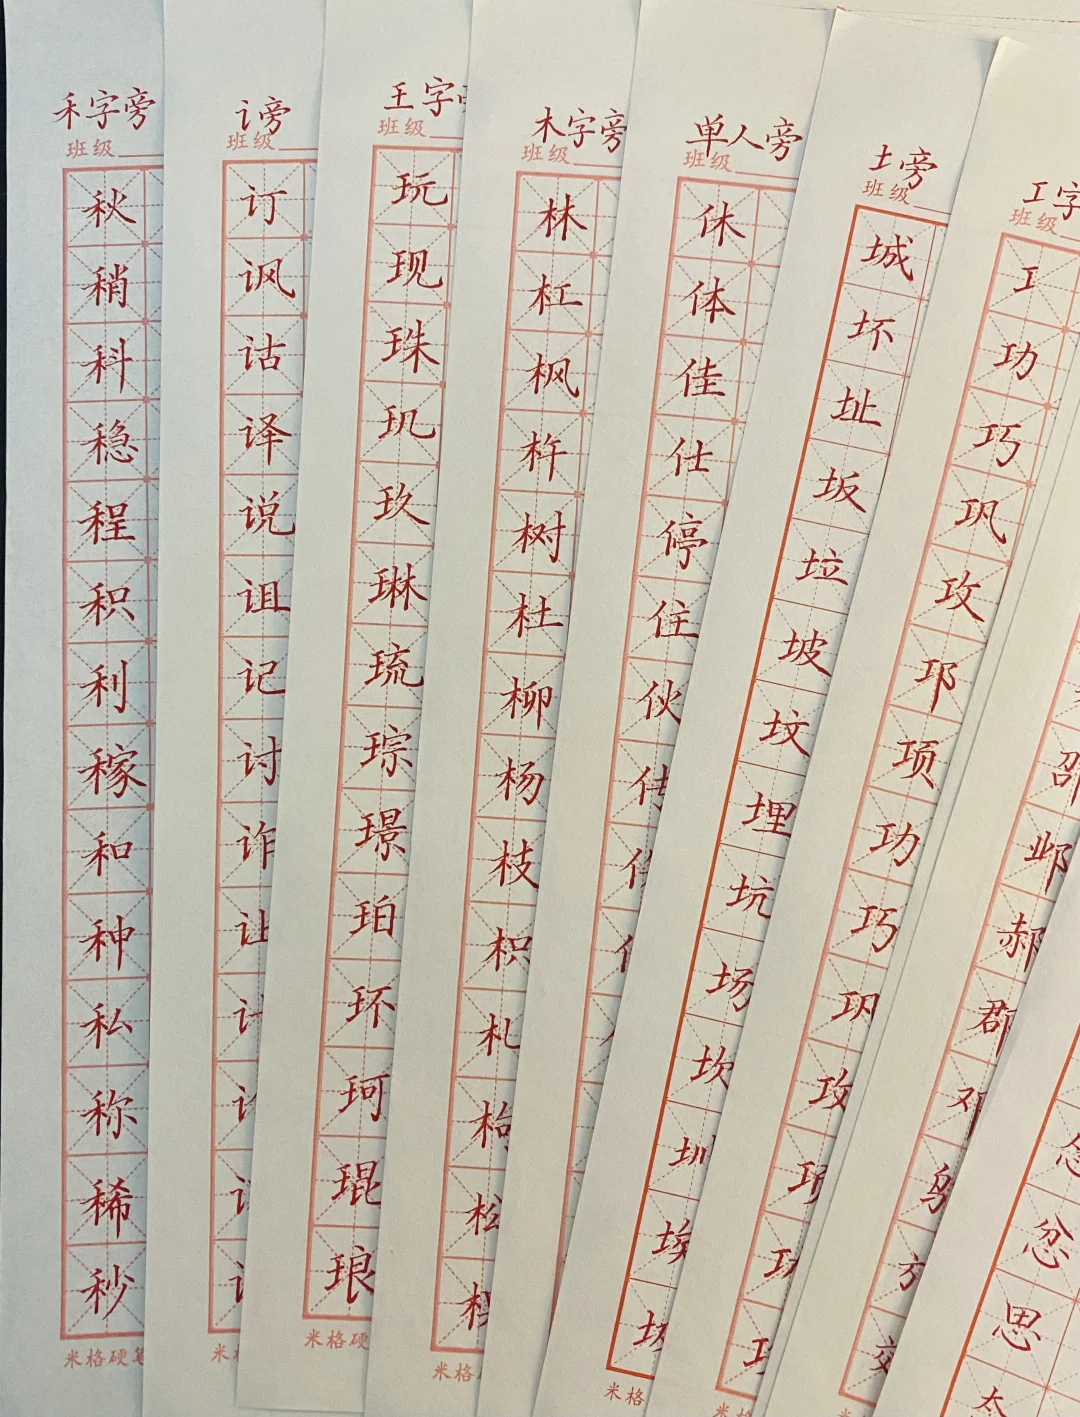 禾字旁
班级
秋
稍
科
稳
程
积
利
稼
和
种
私
称
稀
秒
米格硬笔
讠旁
班级
订
讽
诂
译
说
诅
记
讨
诈
让
计
米
王字旁
班级
玩
现
珠
玑
玖
琳
琉
琮
璟
珀
环
珂
琨
琅
米格硬
木字旁
班级
林
杠
枫
杵
树
杜
柳
杨
枝
枳
札
枸
松
米格
单人旁
班级
休
体
佳
仕
停
住
伙
传
土旁
班级
城
坏
址
坂
垃
坡
坟
埋
坑
场
坎
圳
埃
米格
工字
班级
工
功
巧
巩
攻
邛
项
功
巧
巩
攻
项
功
米格
邵
邺
郝
郡
邓
忿
思